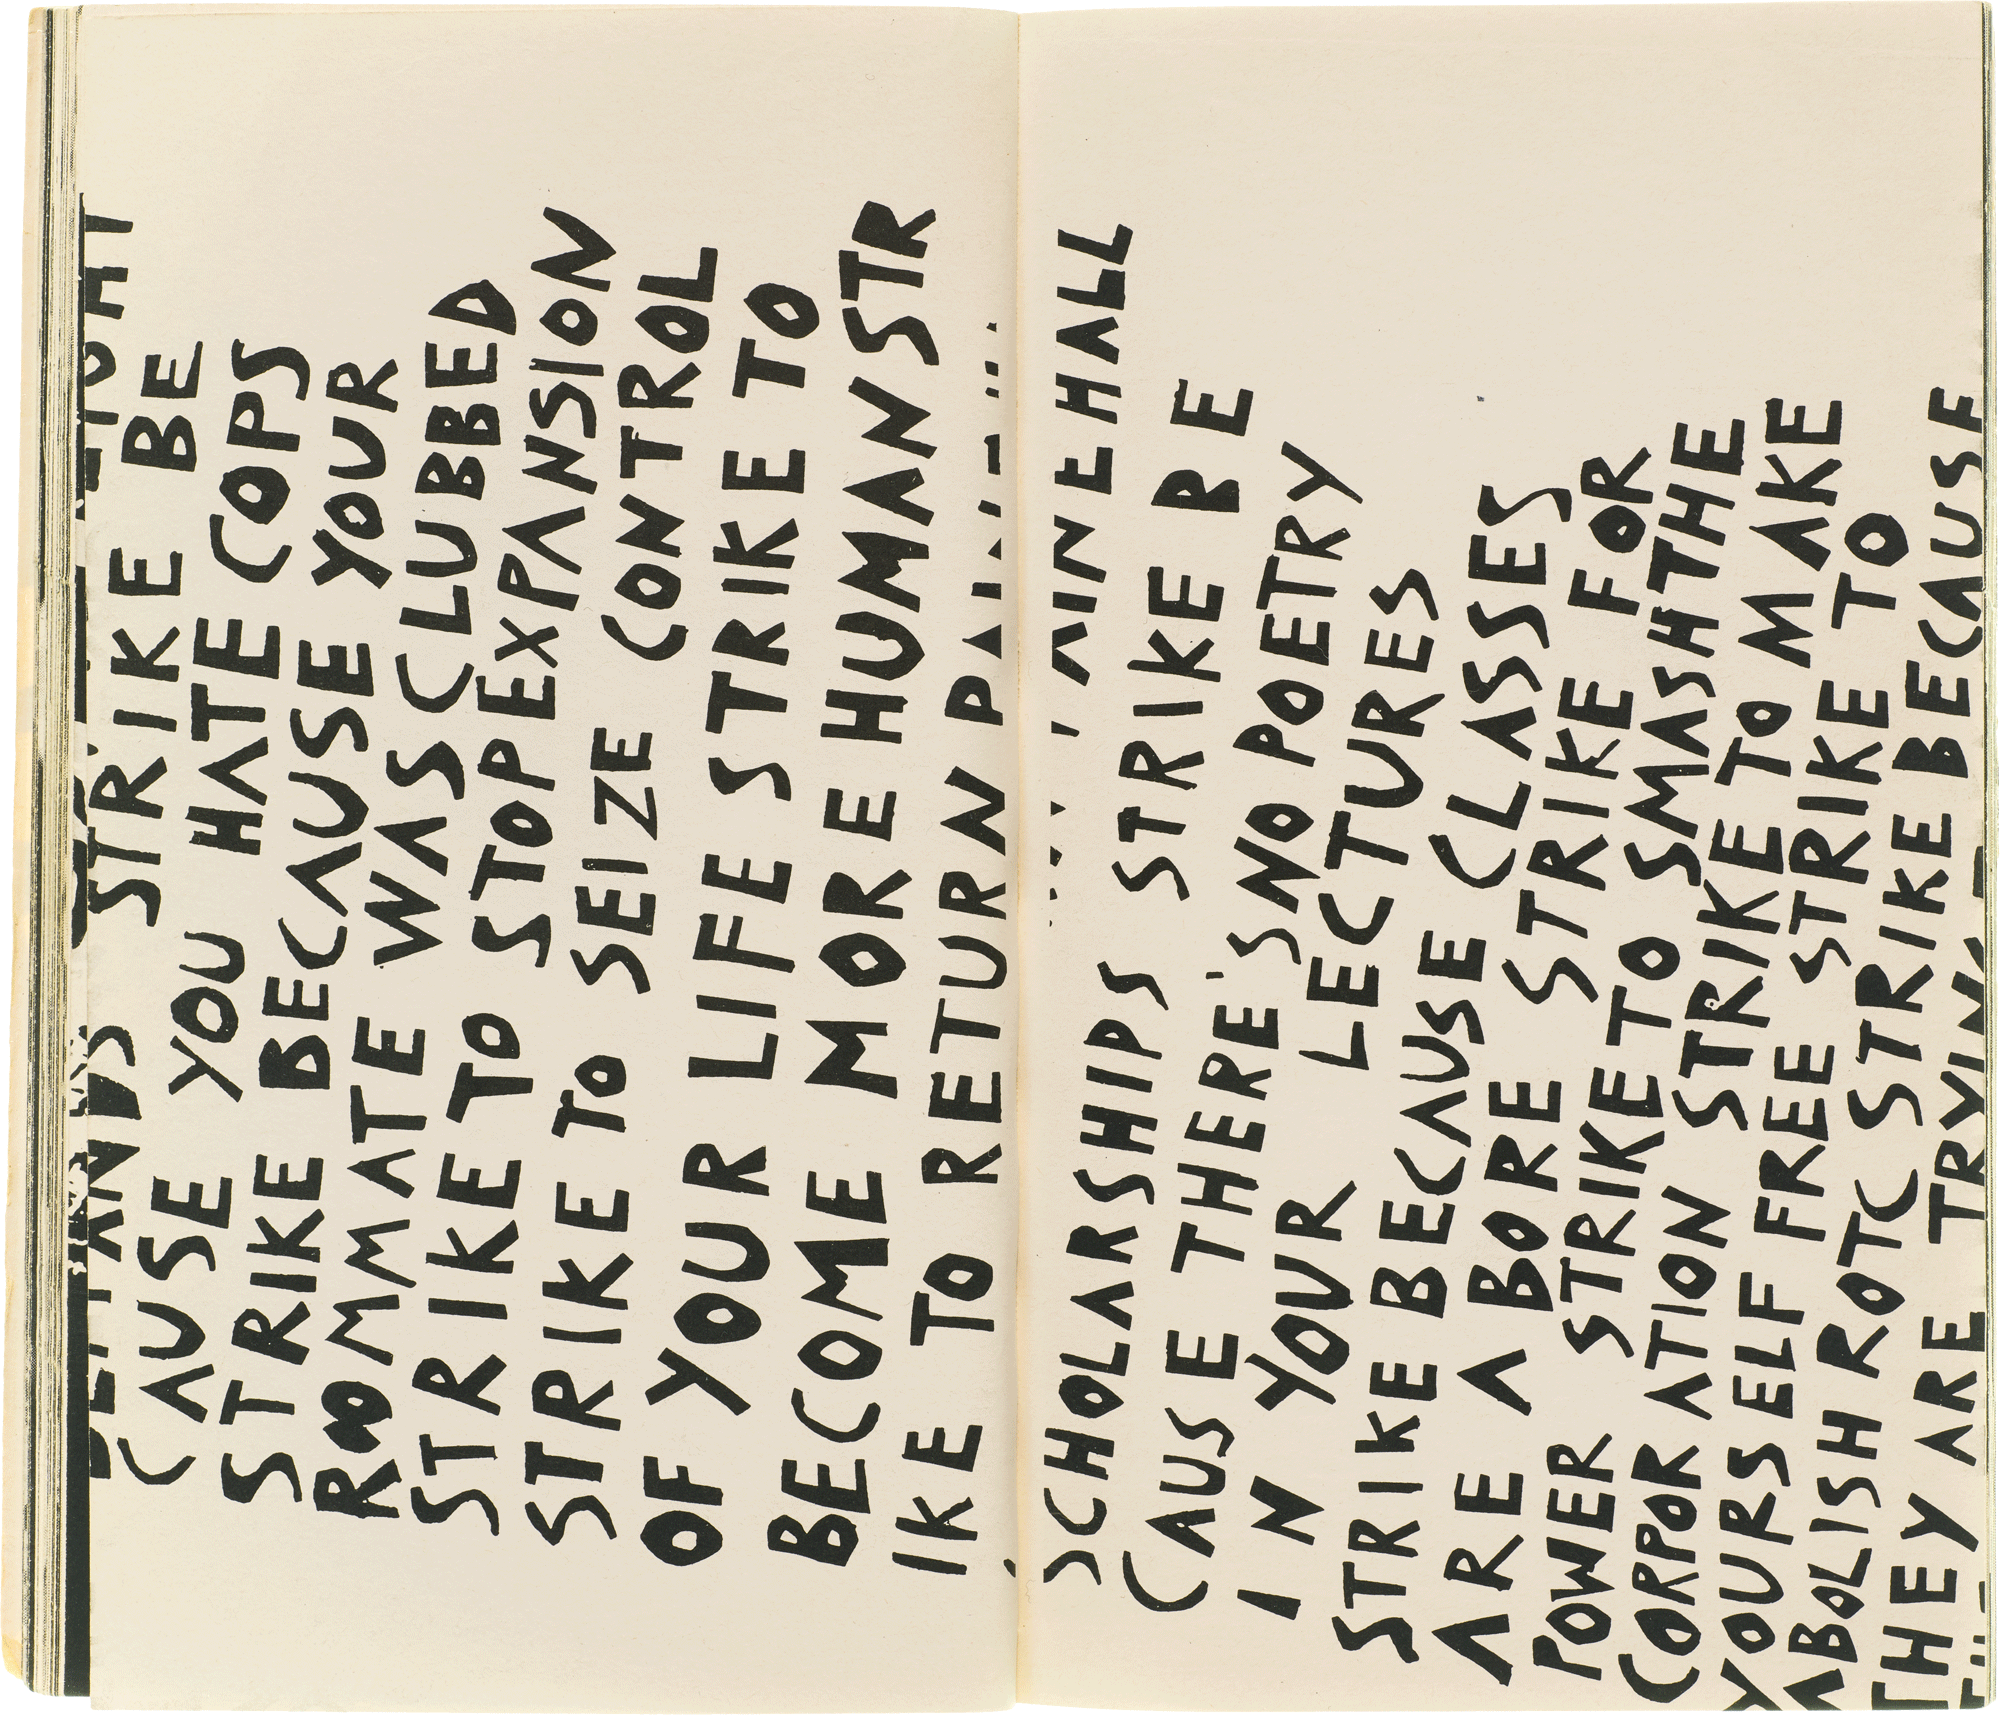 STRIKE BE
CAUSE YOU HATE COPS
STRIKE BECAUSE YOUR
ROOMMATE WAS CLUBBED
STRIKE TO STOP EXPANSION
STRIKE TO SEIZE CONTROL
OF YOUR LIFE STRIKE TO
BECOME MORE HUMAN STR
IKE TO RETURN PAINE HALL
SCHOLARSHIPS STRIKE BE
CAUSE THERE'S NO POETRY
IN YOUR LECTURES
STRIKE BECAUSE CLASSES
ARE A BORE STRIKE FOR
POWER STRIKE TO SMASH THE
CORPORATION STRIKE TO MAKE
YOURSELF FREE STRIKE TO
ABOLISH ROTC STRIKE BECAUSE
THEY ARE TRYING